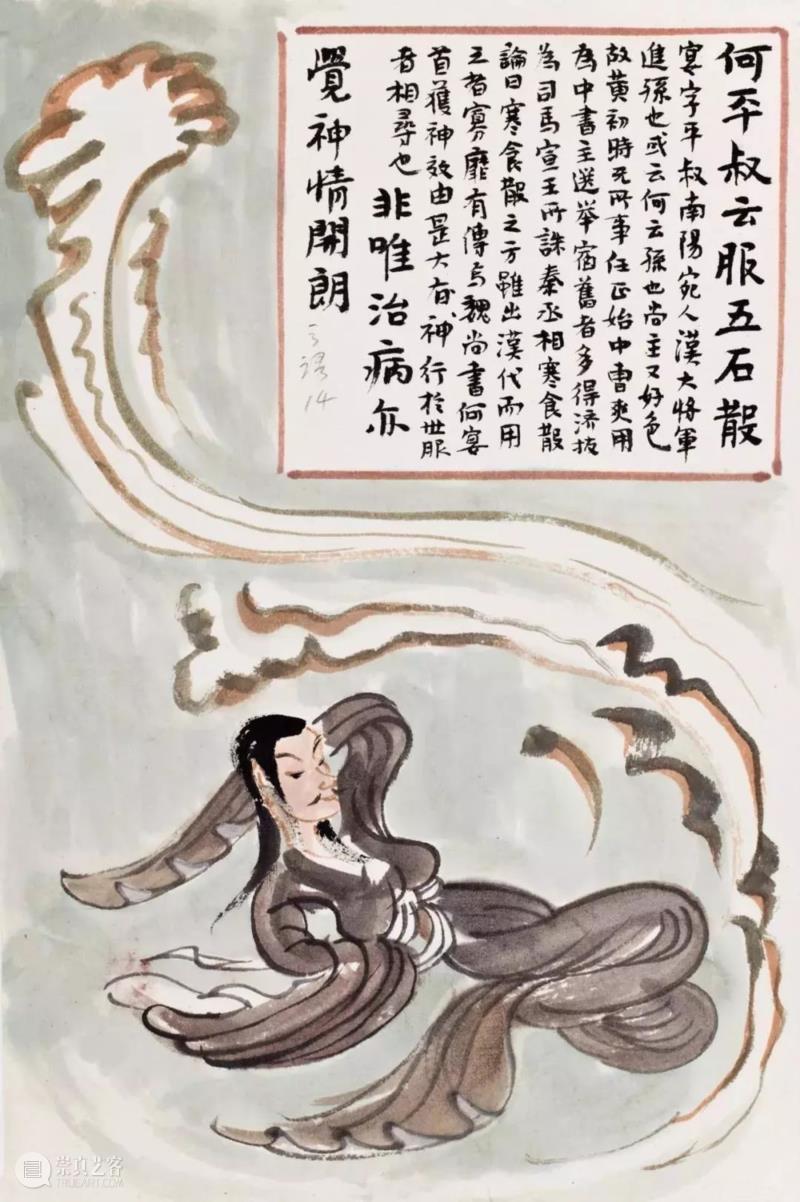 何平叔云服五石散
宴字平叔南陽宛人漢大將軍
進孫也或云何云孫也尚主又好色
故黄初時无所事任正始中曹爽用
為中書主選舉宿舊者多得济拔
為司馬宣王所誅秦丞相寒食散
論曰寒食散之方雖出漢代而用
之者寡靡有傳焉魏尚書何宴
首獲神效由是大有神行於世服
者相尋也 非唯治病亦
覺神情開朗 言語14
崇真艺客
TRUEART.COM